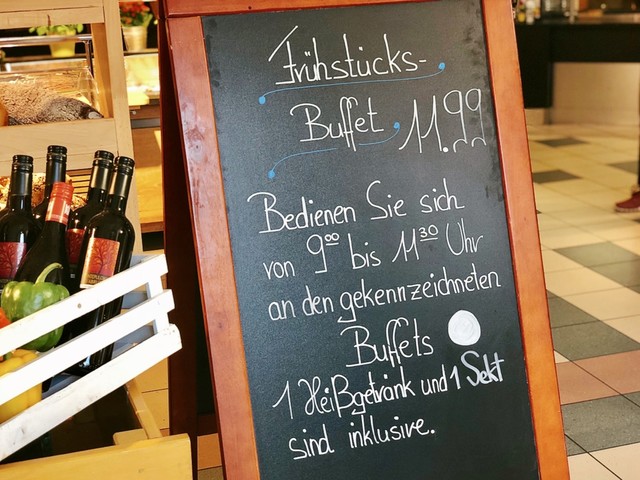 Frühstücks-
Buffet 11.99
Bedienen Sie sich
von 9⁰⁰ bis 11³⁰ Uhr
an den gekennzeichneten
Buffets
1 Heißgetränk und 1 Sekt
sind inklusive.